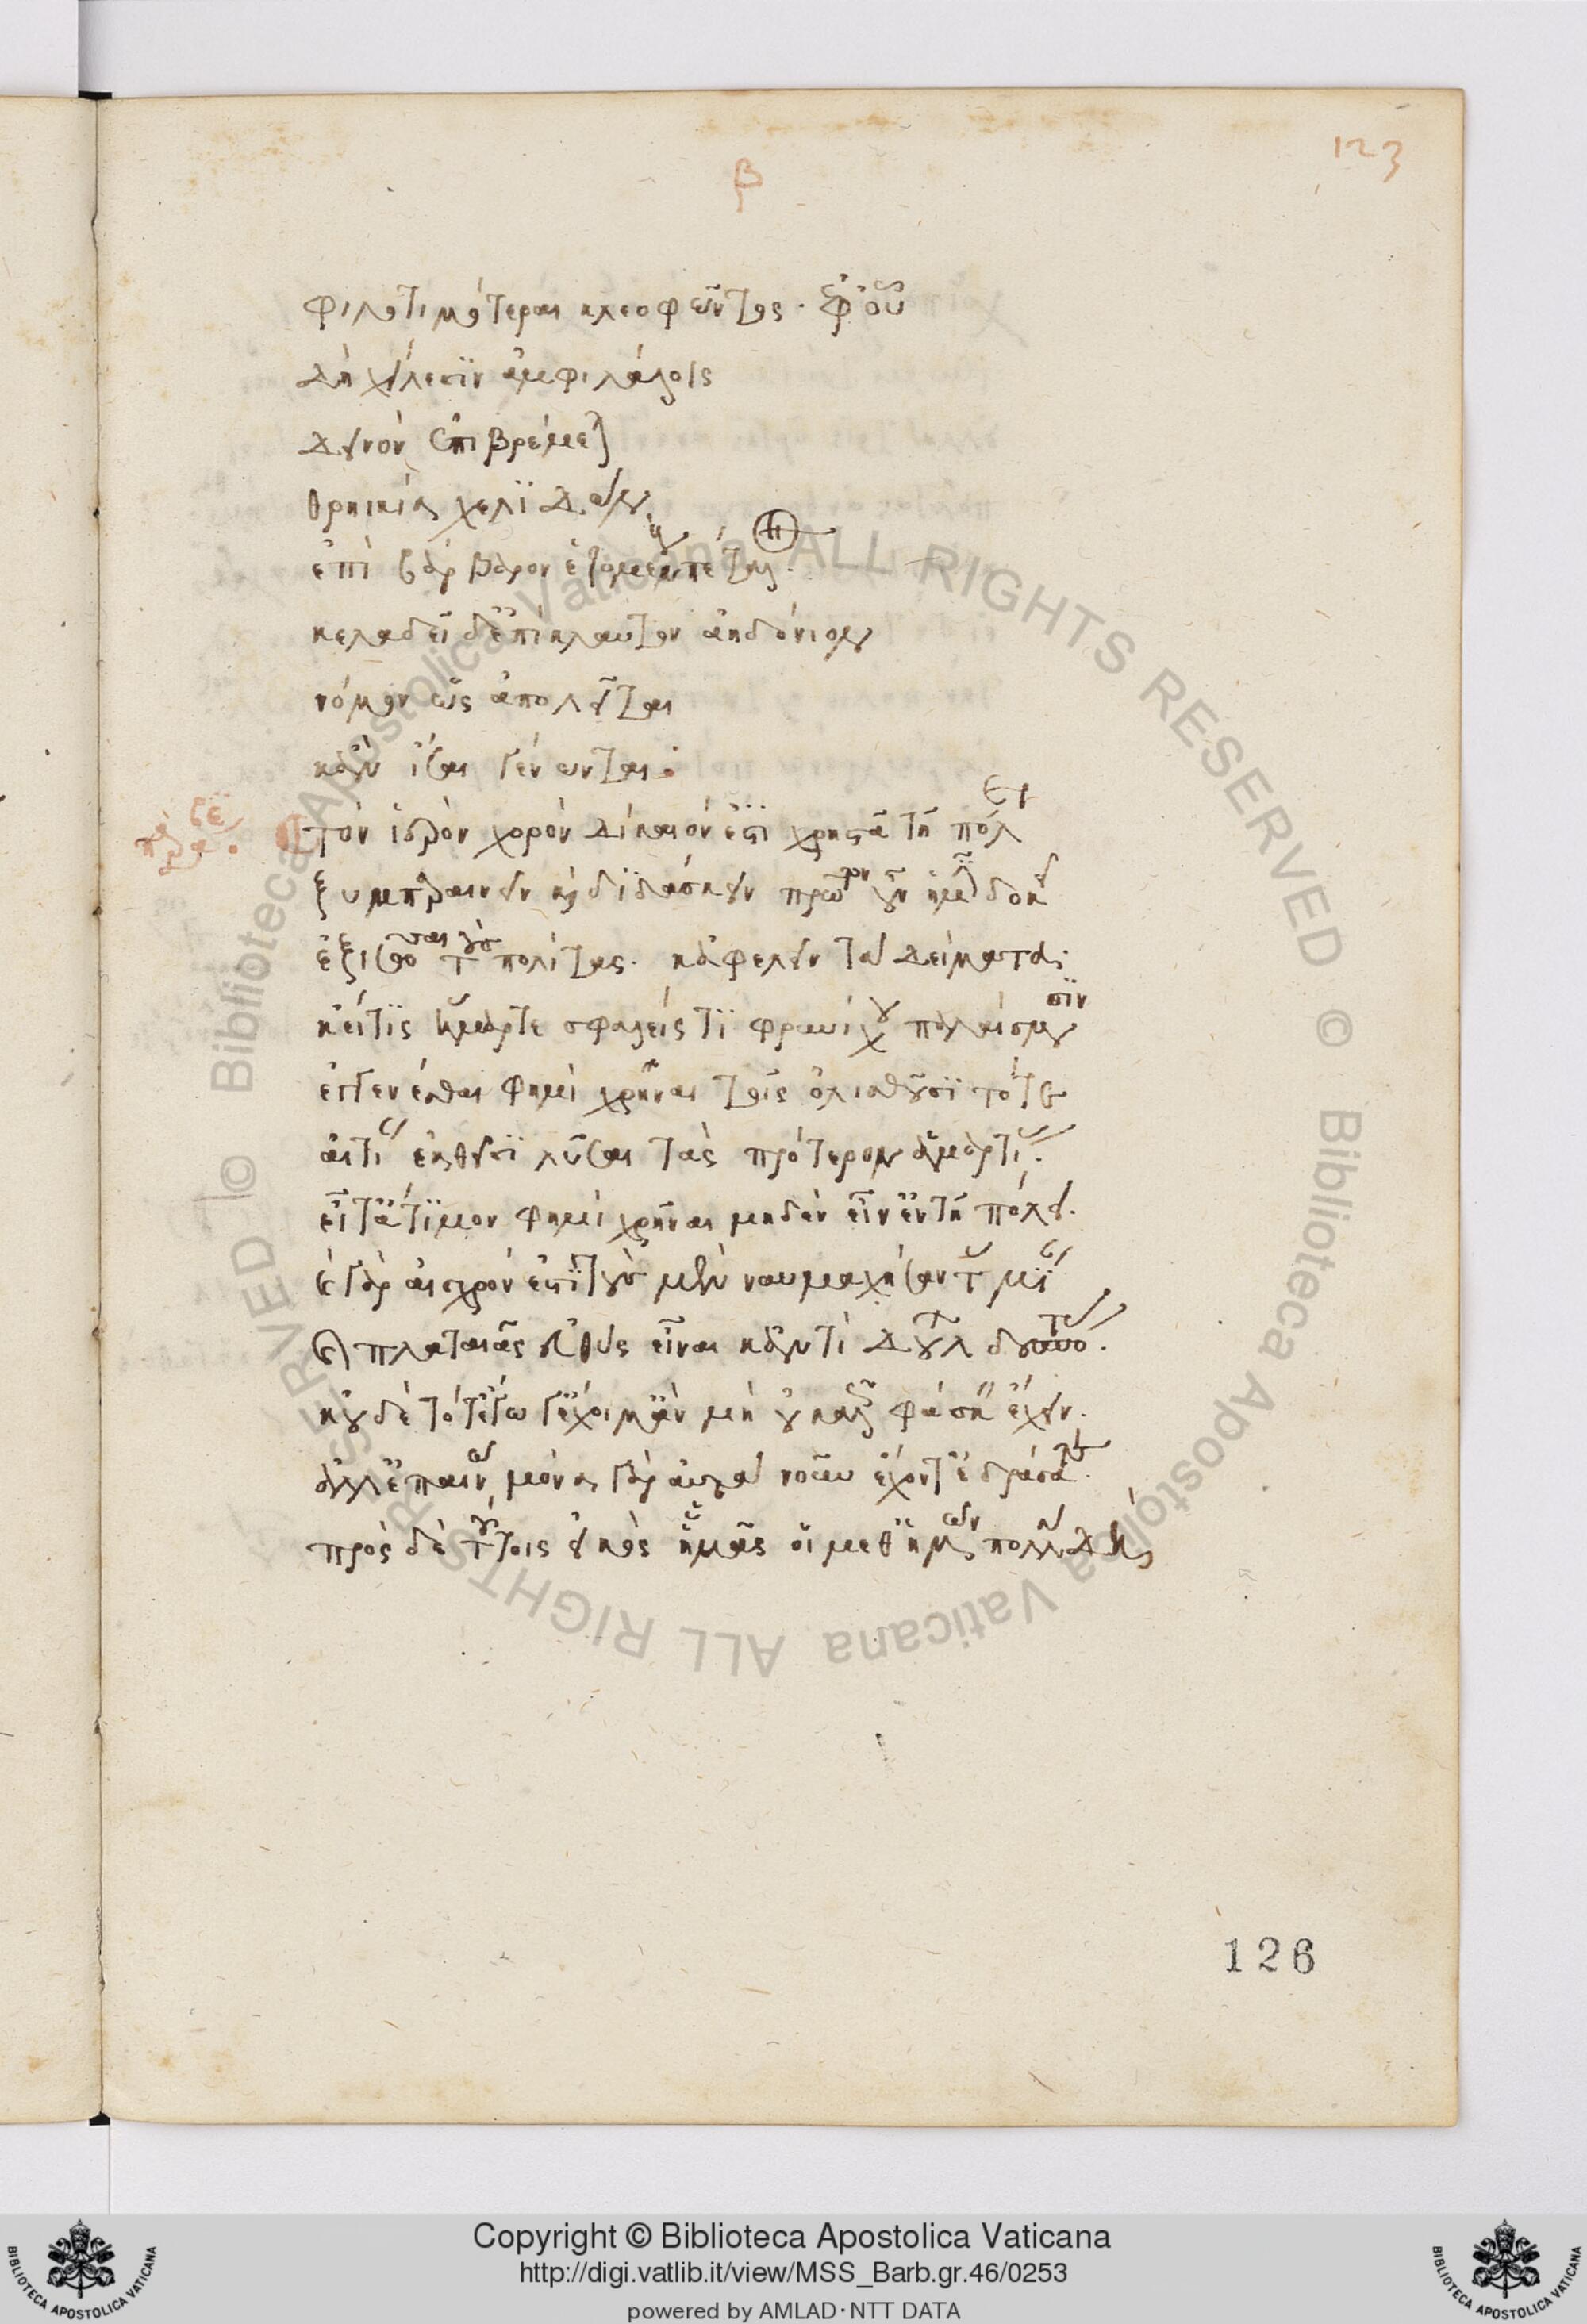 123
β
φιλοτιμότεραι κλεοφῶντος. ἐφ' οὗ
δὴ χείλεσιν ἀμφιλάλοις
δεινὸν ἐπιβρέμεται
θρηικία χελιδὼν
ἐπὶ βάρβαρον ἑζομένη πέταλον.
κελαδεῖ δ' ἐπίκλαυτον ἀηδόνιον
νόμον ὡς ἀπολεῖται
κἂν ἴσαι γένωνται:
τὸν ἱερὸν χορὸν δίκαιόν ἐστι χρηστὰ τῆ πόλει
ξυμπαραινεῖν καὶ διδάσκειν πρῶτον οὖν ἡμῖν δοκεῖ
ἐξισῶσαι τοὺς πολίτας. κἀφελεῖν τὰ δείματα.
κεἴ τις ἥμαρτε σφαλείς τι φρυνίχου παλαίσμασιν
ἐγγενέσθαι φημὶ χρῆναι τοῖς ὀλισθοῦσι τότε
αἰτίαν ἐκθεῖσι λῦσαι τὰς πρότερον ἁμαρτίας.
εἶτ' ἄτιμον φημὶ χρῆναι μηδέν' εἶν' ἐν τῆ πόλει.
καὶ γὰρ αἰσχρόν ἐστι τοὺς μὲν ναυμαχήσαντας μίαν
καὶ πλαταιᾶς εὐθὺς εἶναι κἀντὶ δούλων δεσπότας.
κοὐδὲ ταῦτ' ἔγωγ' ἔχοιμ' ἂν μὴ οὐ καλῶς φάσκειν ἔχειν.
ἀλλ' ἐπαινῶ μόνα γὰρ αὐτὰ νοῦν ἔχοντ' ἐδράσατε.
πρὸς δὲ τούτοις εἰκὸς ἡμᾶς οἳ μεθ' ἡμῶν πολλὰ δὴ
126
Biblioteca Apostolica Vaticana ALL RIGHTS RESERVED ©
Biblioteca Apostolica Vaticana ALL RIGHTS RESERVED ©
Copyright © Biblioteca Apostolica Vaticana
http://digi.vatlib.it/view/MSS_Barb.gr.46/0253
powered by AMLAD·NTT DATA
BIBLIOTECA APOSTOLICA VATICANA
BIBLIOTECA APOSTOLICA VATICANA